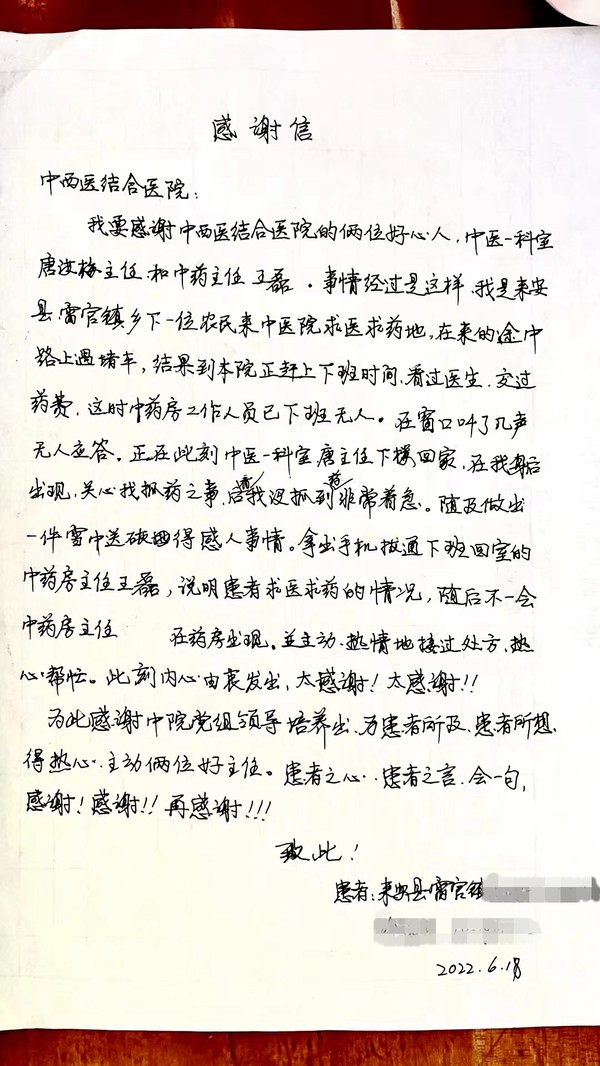 感谢信
中西医结合医院：
我要感谢中西医结合医院的俩位好心人，中医一科室
唐汝梅主任和中药主任王磊。事情经过是这样，我是来安
县雷官镇乡下一位农民来中医院求医求药地，在来的途中
路上遇堵车，结果到本院正赶上下班时间、看过医生、交过
药费，这时中药房工作人员已下班无人。在窗口叫了几声
无人应答。正在此刻中医一科室唐主任下楼回家，在我身后
出现，关心我抓药之事，看我没抓到药非常着急。随及做出
一件雪中送碳得感人事情。拿出手机拨通下班回室的
中药房主任王磊，说明患者求医求药的情况，随后不一会
中药房主任 在药房出现。并主动、热情地接过处方、热
心帮忙。此刻内心由衷发出，太感谢！太感谢！！
为此感谢中院党组领导培养出、为患者所及、患者所想、
得热心、主动俩位好主任。患者之心、患者之言、会一句，
感谢！感谢！！再感谢！！！
致此！
患者：来安县雷官镇
2022.6.18